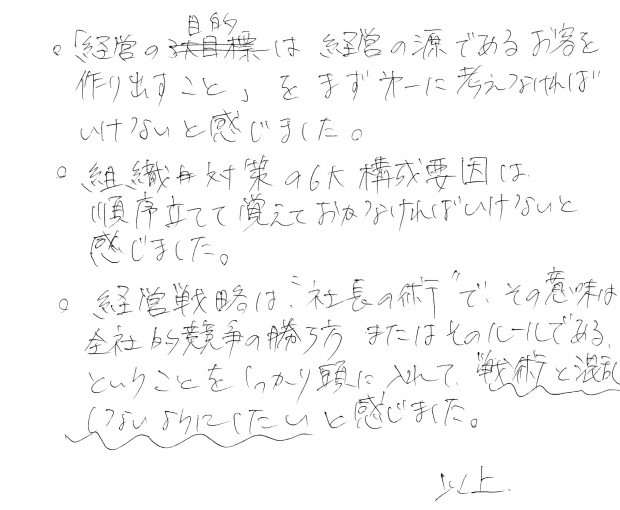 。「経営の目的は 経営の源であるお客を
作り出すこと」をまず才一に考えなければ
いけないと感じました。
。組織 対策の6大構成要因は
順序立てて覚えておかなければいけないと
感じました。
。経営戦略は、"社長の術"で、その意味は
全社的競争の勝ち方 またはそのルールである、
ということをしっかり頭に入れて、戦術と混乱
しないようにしたいと感じました。
以上.